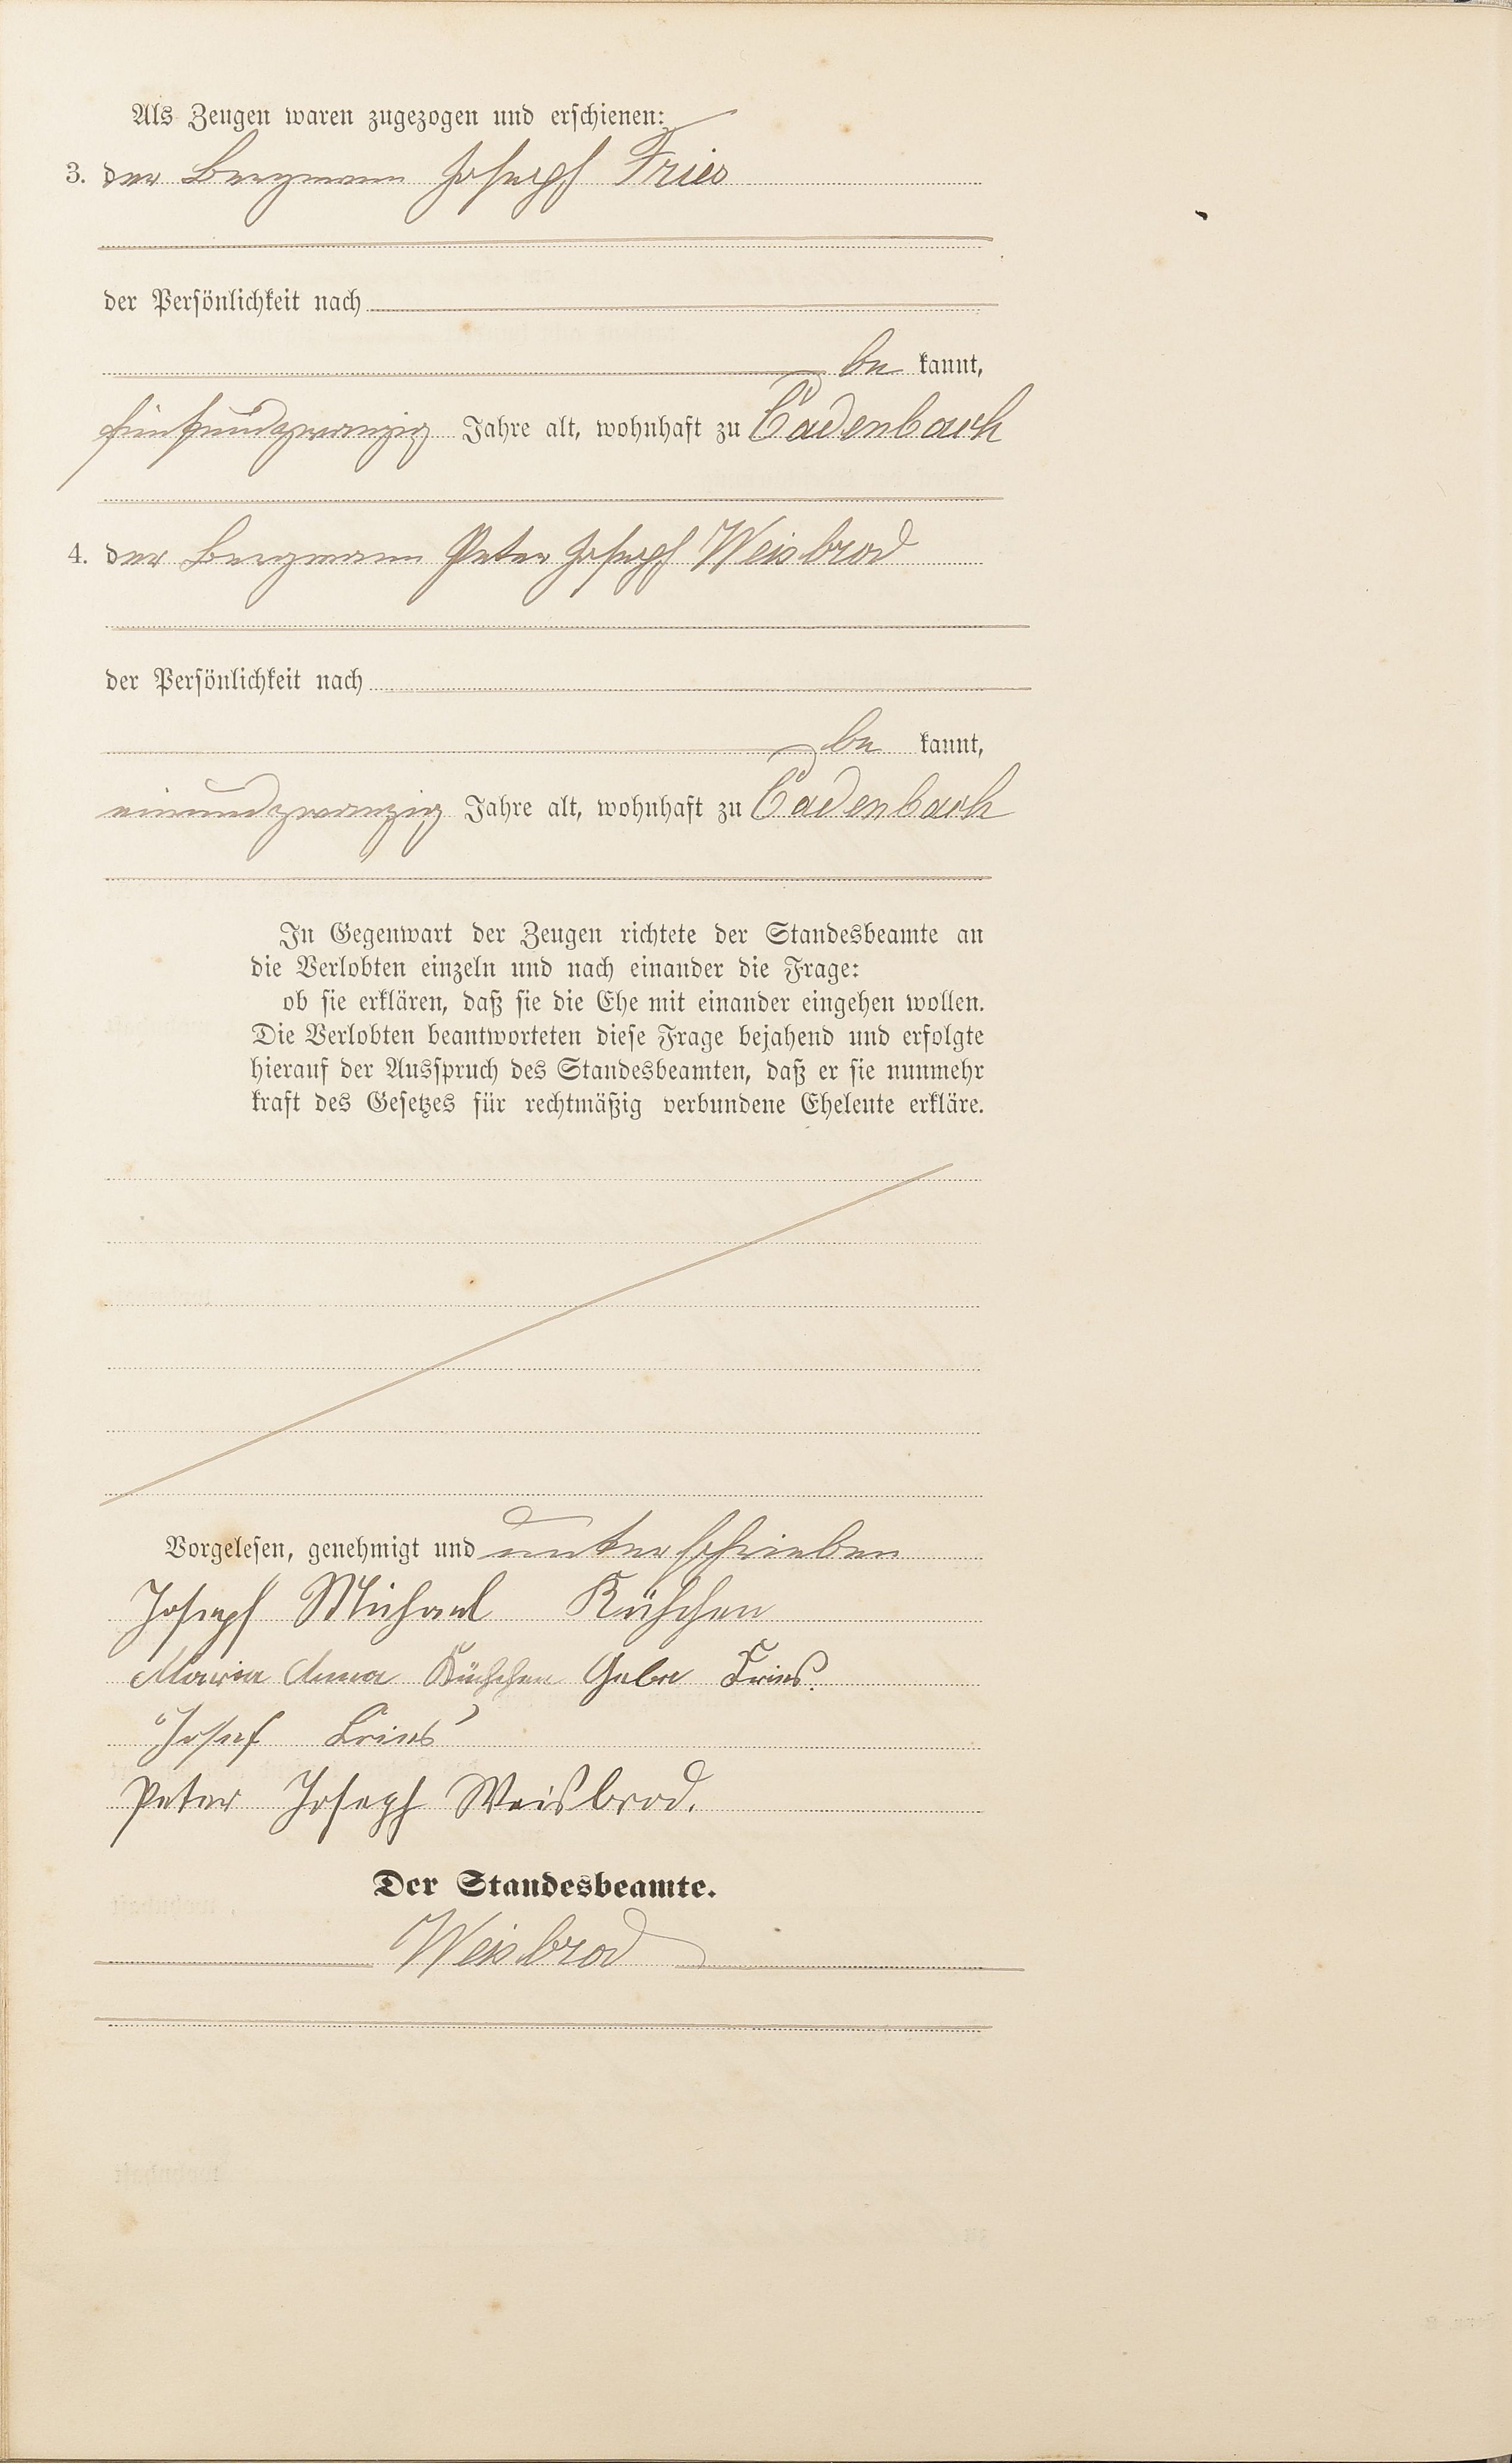 Als Zeugen waren zugezogen und erschienen:
3. der Bergmann Joseph Fries
der Persönlichkeit nach
be kannt,
fünfundzwanzig Jahre alt, wohnhaft zu Cadenbach
4. der Bergmann Peter Joseph Weisbrod
der Persönlichkeit nach
be kannt,
einundzwanzig Jahre alt, wohnhaft zu Cadenbach
In Gegenwart der Zeugen richtete der Standesbeamte an
die Verlobten einzeln und nach einander die Frage:
ob sie erklären, daß sie die Ehe mit einander eingehen wollen.
Die Verlobten beantworteten diese Frage bejahend und erfolgte
hierauf der Ausspruch des Standesbeamten, daß er sie nunmehr
kraft des Gesetzes für rechtmäßig verbundene Eheleute erkläre.
Vorgelesen, genehmigt und unterschrieben
Joseph Michael
Maria Anna Gebr Fries.
Josef Fries
Peter Joseph Weisbrod.
Der Standesbeamte.
Weisbrod